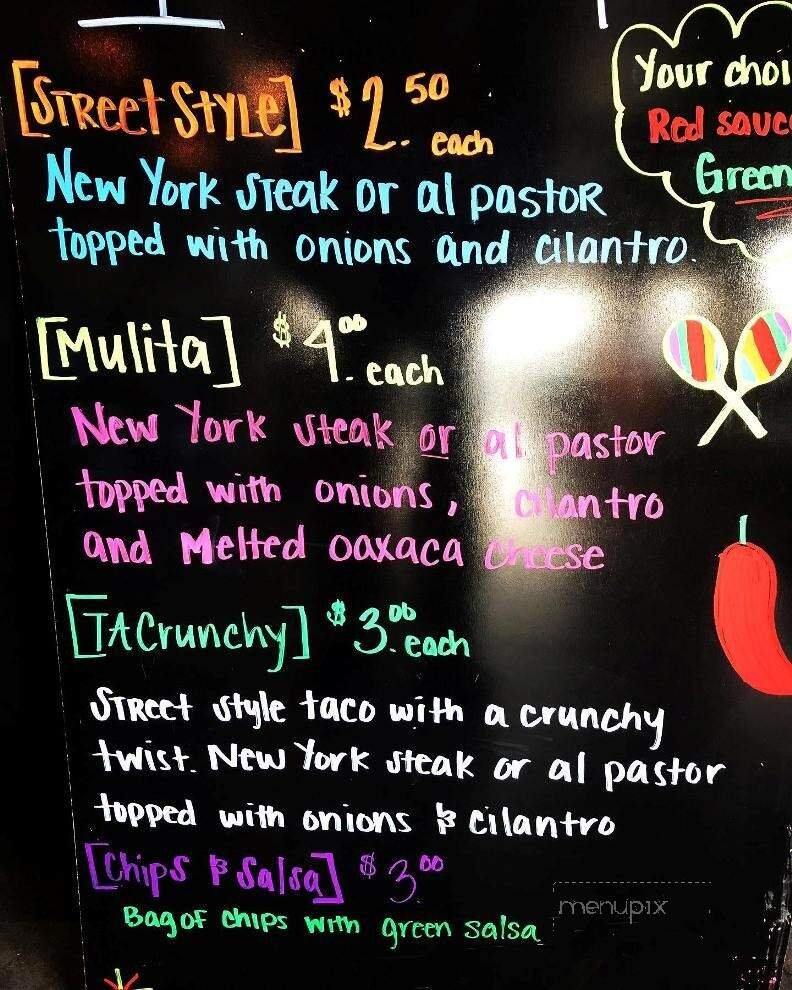 [Street Style] $2.50 each
Your choi
Red sauce
Green
New York Steak or al pastor
topped with onions and cilantro.
[Mulita] $4.00 each
New York steak or al pastor
topped with onions, cilantro
and Melted oaxaca cheese
[TACrunchy] $3.00 each
Street style taco with a crunchy
twist. New York steak or al pastor
topped with onions & cilantro
[Chips & Salsa] $3.00
Bag of chips with green salsa
menupix